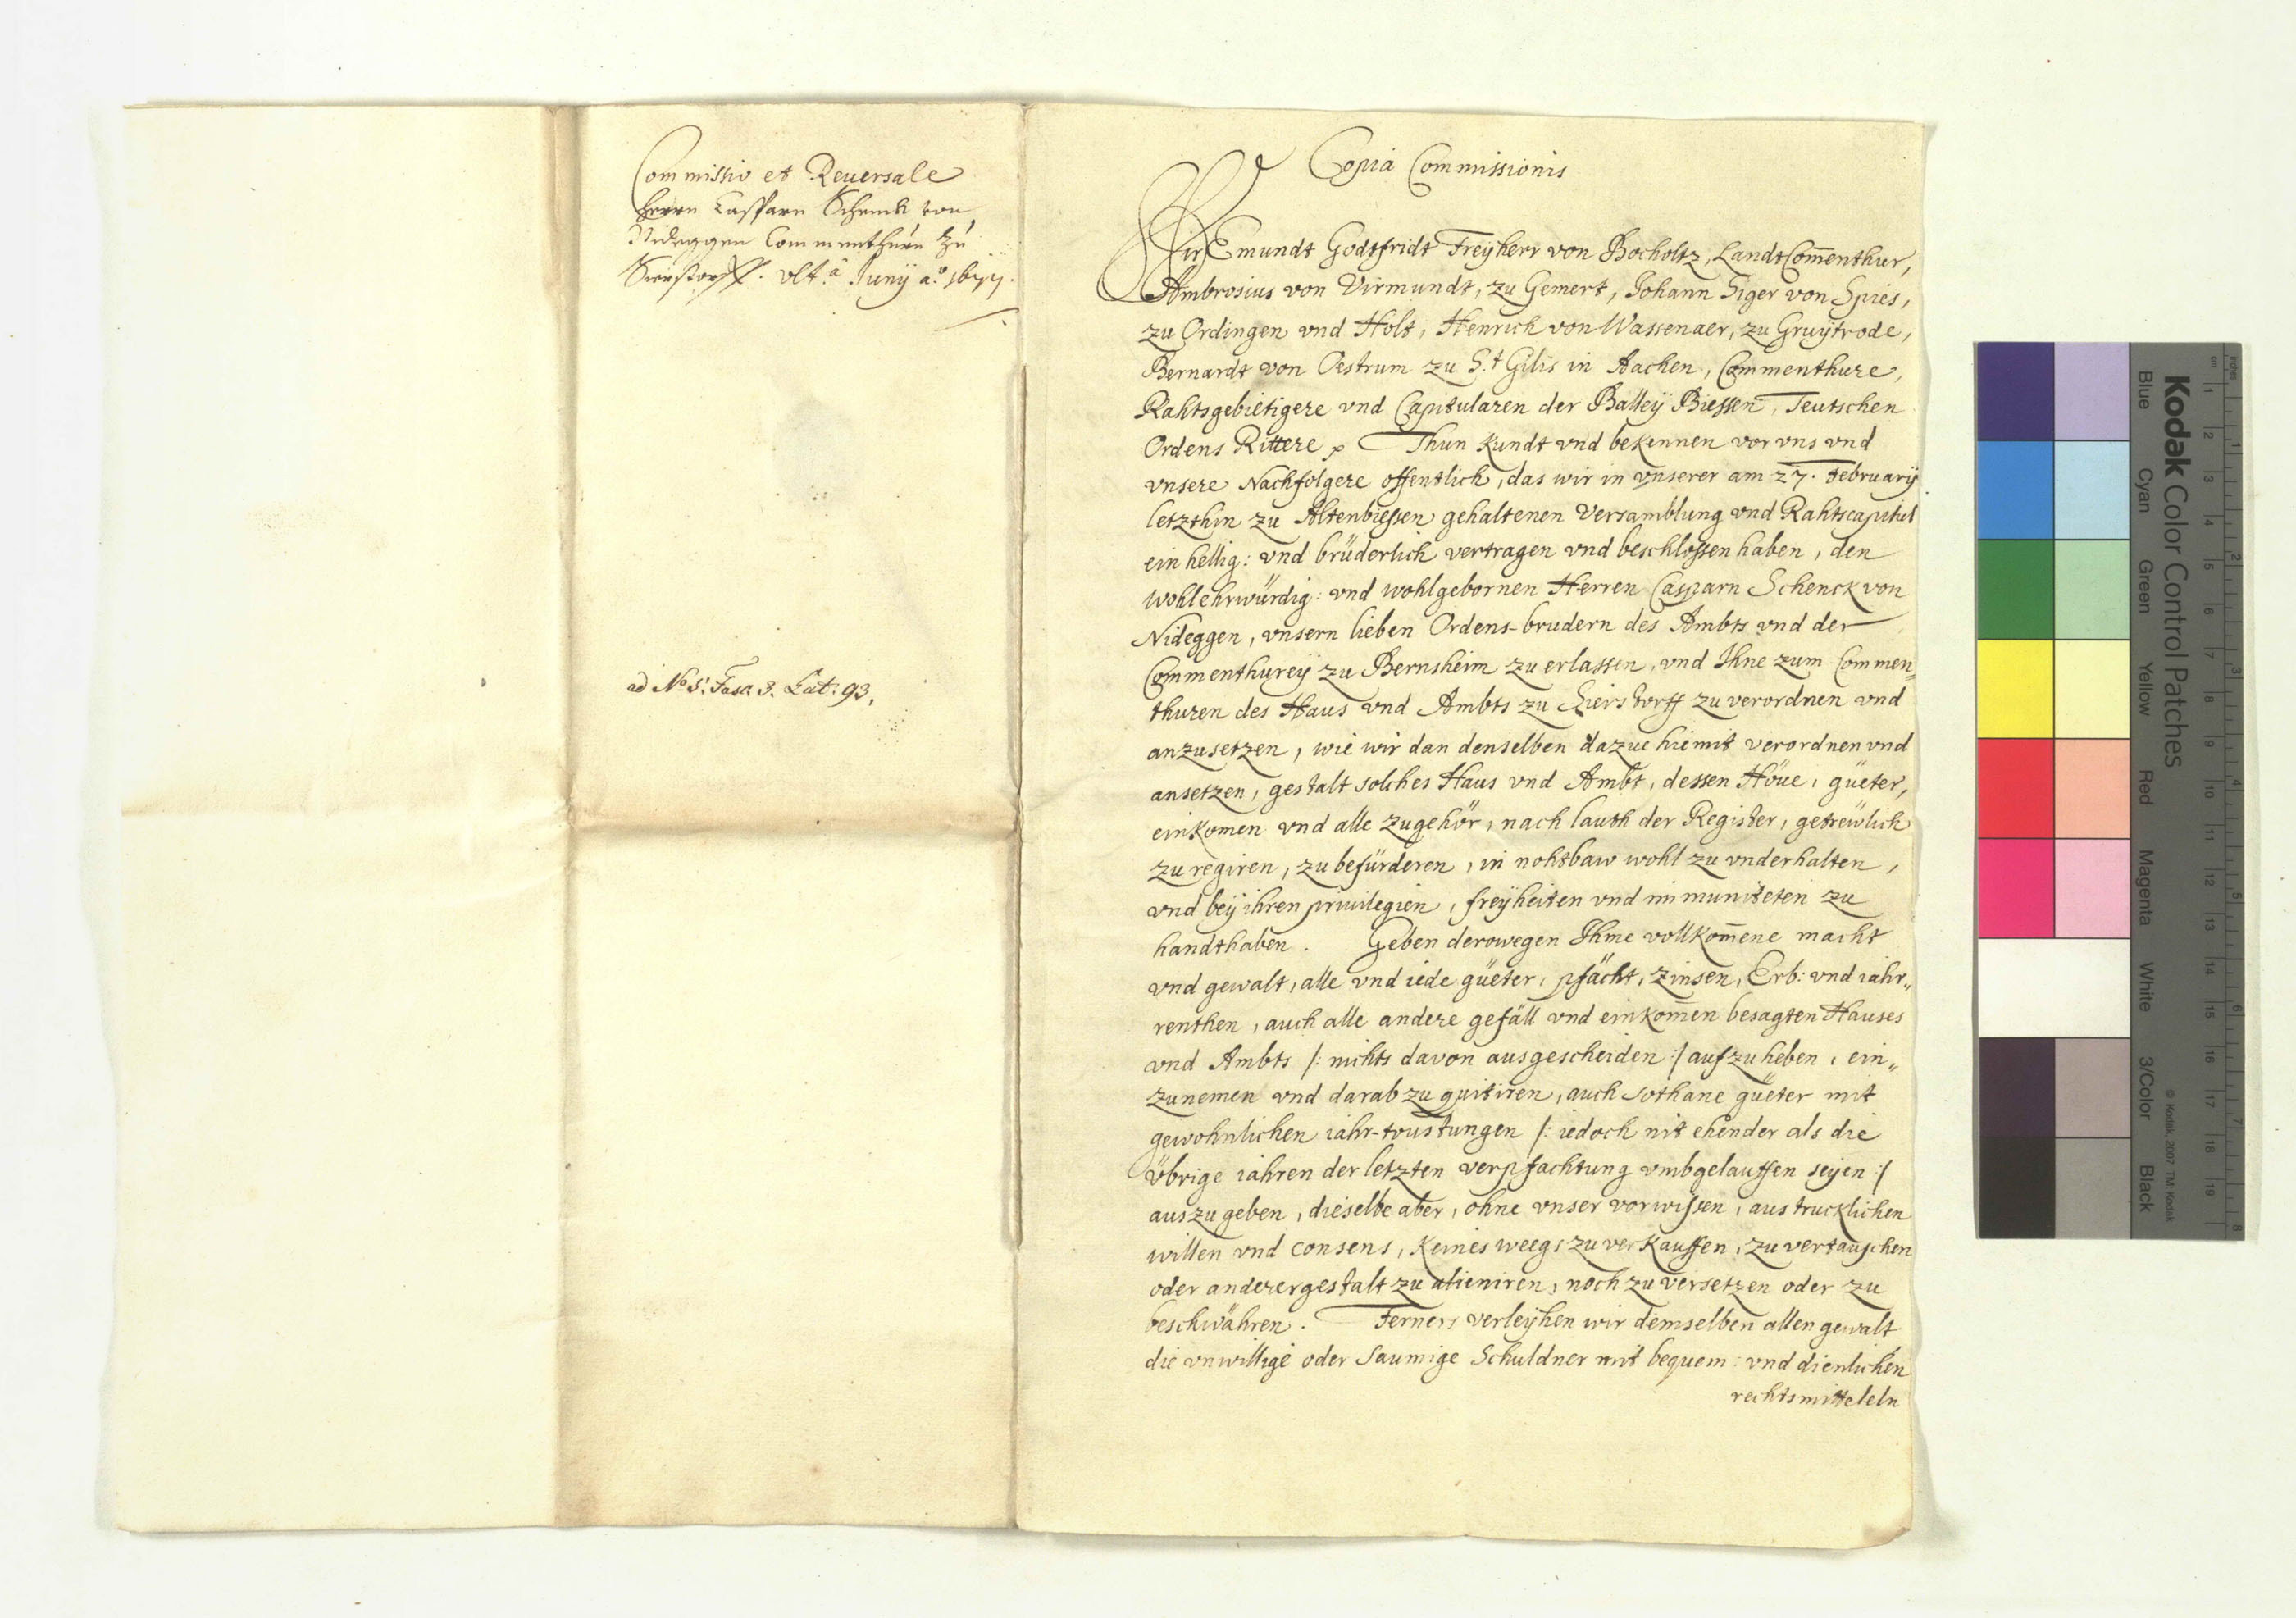 Commissio et Reuersale
Herrn Casparn Schenck von
Nideggen Commenthurn zu
Sierstorff. ult.a Junÿ a.o 1677.
ad No 5. Fasc. 3. Lat: 93.
Copia Commissionis
Wir Emundt Godtfridt Freÿherr von Bocholtz, LandtCom̄enthur,
Ambrosius von Virmundt, zu Gemert, Johann Siger von Spies,
zu Ordingen vnd Holt, Henrich von Wassenaer, zu Gruÿtrode,
Bernardt von Oestrum zu S.t Gilis in Aachen, Commenthure,
Rahtsgebietigere vnd Capitularen der Balleÿ Biessen, Teutschen
Ordens Rittere p Thun kundt vnd bekennen vor vns vnd
vnsere Nachfolgere offentlich, das wir in vnserer am 27. Februarÿ
letzthin zu Altenbiessen gehaltenen Versamblung vnd Rahtscapitul
ein hellig: vnd brüderlich vertragen vnd beschlossen haben, den
wohlehrwürdig: vnd wohlgebornen Herren Casparn Schenck von
Nideggen, vnsern lieben Ordens-brudern des Ambts vnd der
Commenthureÿ zu Bernsheim zu erlassen, vnd Ihne zum Commen„
thuren des Haus vnd Ambts zu Sierstorff zu verordnen vnd
anzusetzen, wie wir dan denselben dazue hiemit verordnen vnd
ansetzen, gestalt solches Haus vnd Ambt, dessen Höue, güeter,
einkomen vnd alle zugehör, nach lauth der Register, getrewlich
zu regiren, zu befürderen, in nohtbaw wohl zu vnderhalten,
vnd beÿ ihren priuilegien, freÿheiten vnd immuniteten zu
handthaben. Geben derowegen Ihme vollkom̄ene macht
vnd gewalt, alle vnd iede güeter, pfächt, zinsen, Erb: vnd iahr„
renthen, auch alle andere gefäll vnd einkom̄en besagten Hauses
vnd Ambts /: nichts davon ausgescheiden :/ aufzuheben, ein„
zunemen vnd darab zu quitiren, auch sothane güeter mit
gewohnlichen iahr- /: iedoch nit ehender als die
übrige iahren der letzten verpfachtung vmbgelauffen seÿen :/
auszugeben, dieselbe aber, ohne vnser vorwissen, austrucklichen
willen vnd consens, keines weegs zu verkauffen, zu vertauschen
oder anderergestalt zu alieniren, noch zu versetzen oder zu
beschwähren. Ferners verleÿhen wir demselben allen gewalt
die vnwillige oder saumige Schuldner mit bequem: vnd dienlichen
rechtsmitteleln